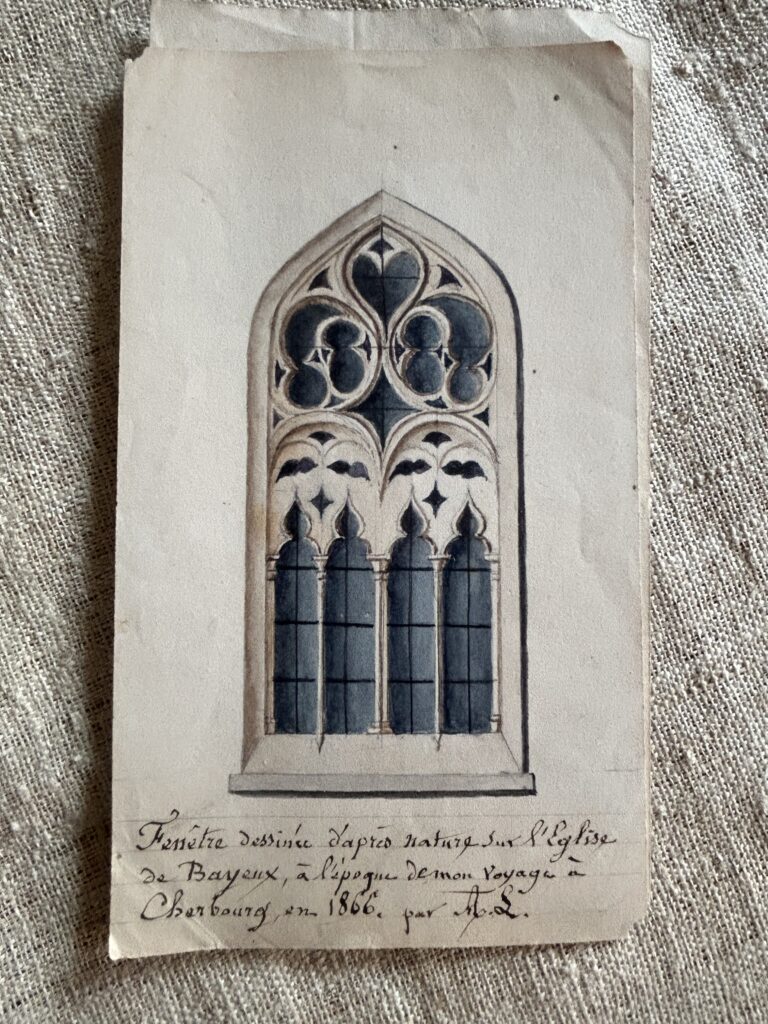 Fenêtre dessinée d'après nature sur l'Eglise
de Bayeux, à l'époque de mon voyage à
Cherbourg, en 1866. par A. L.